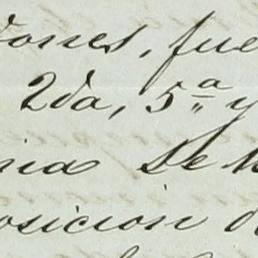 dones, fue
2da, 5.ª y
ina de
osicion d